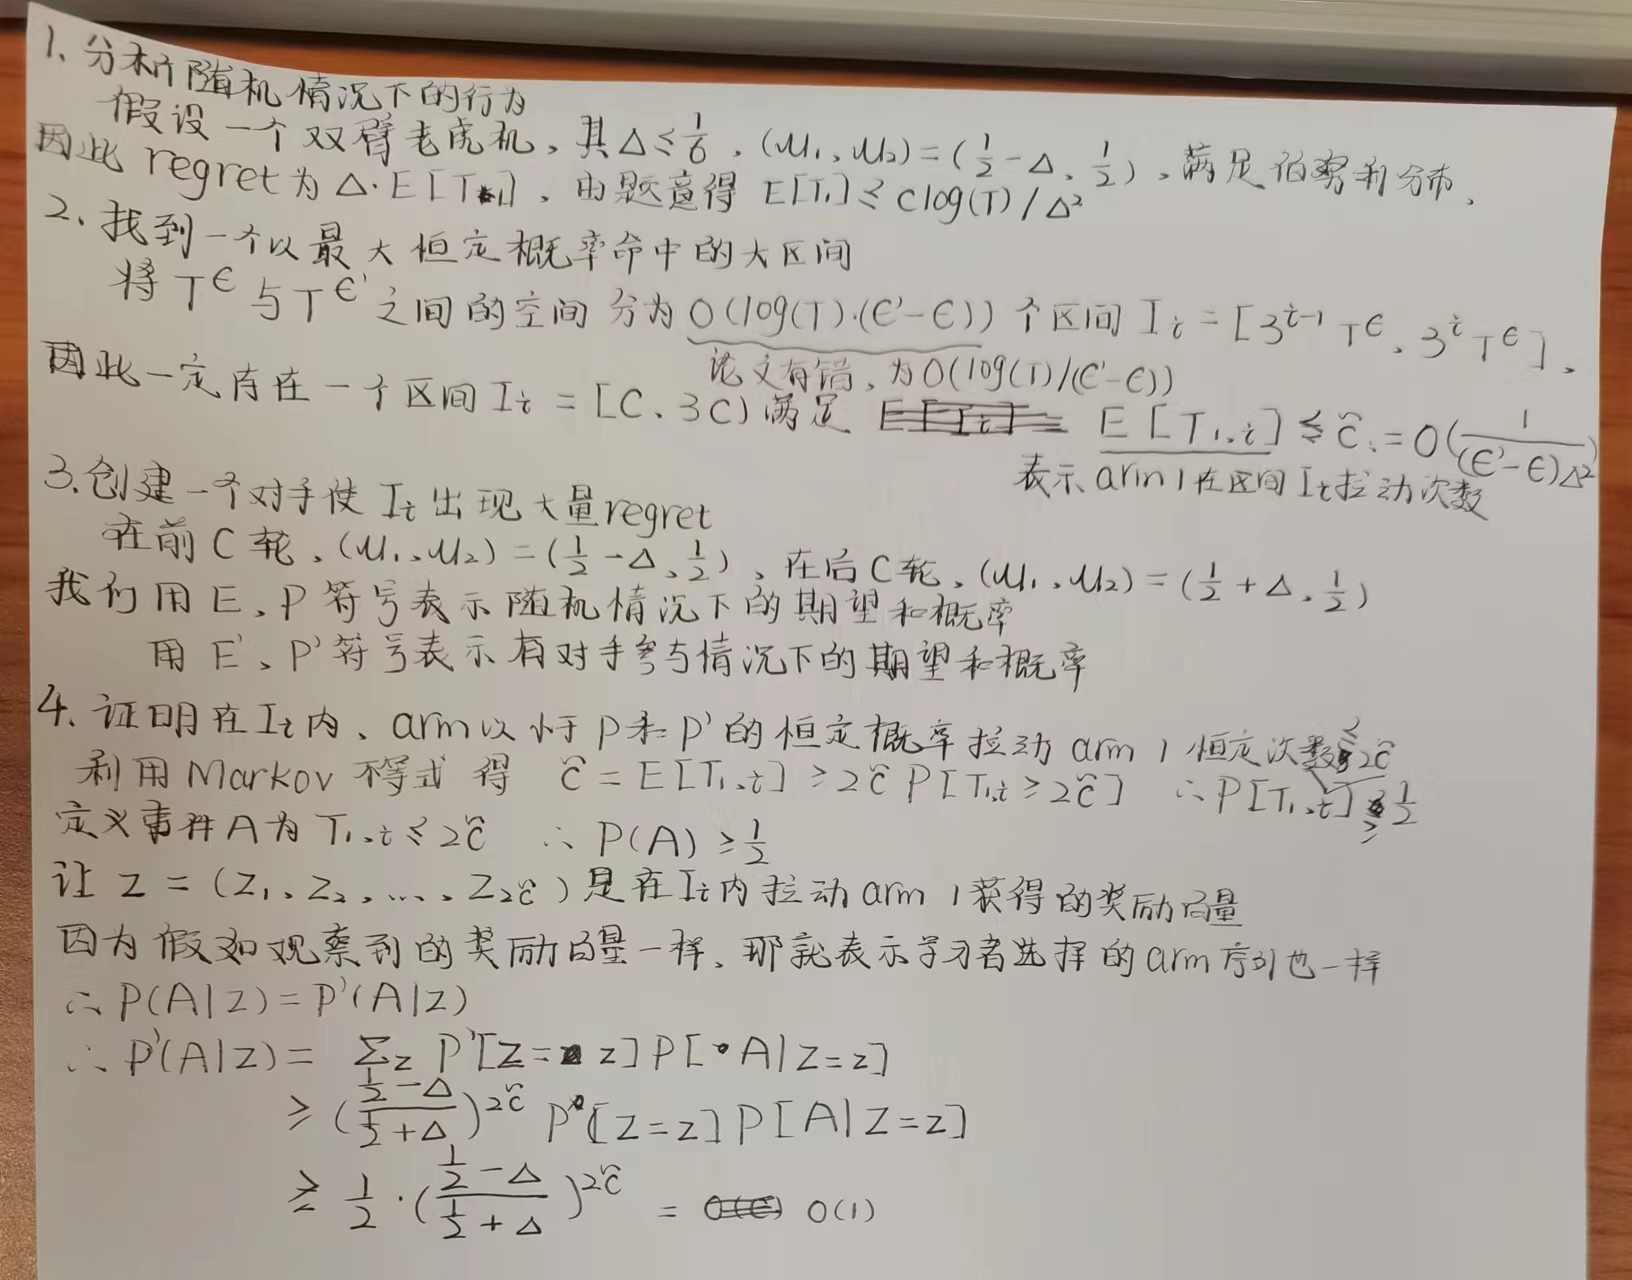 1. 分析随机情况下的行为
假设一个双臂老虎机，其Δ≤1/6，(μ1、μ2)=(1/2-Δ、1/2)，满足伯努利分布，
因此regret为Δ·E[T1]，由题意得 E[T1]≤Clog(T)/Δ²
2. 找到一个以最大恒定概率命中的大区间
将 T^ϵ 与 T^ϵ' 之间的空间分为 O(log(T)·(ϵ'-ϵ)) 个区间 I_i = [3^{i-1} T^ϵ、3^i T^ϵ]，
论文有错，为O(log(T)/(ϵ'-ϵ))
因此一定存在一个区间 I_i = [C、3C) 满足 E[T_{1,i}] ≤ ĉ := O(1/((ϵ'-ϵ)Δ²))
表示 arm 1 在区间 I_i 拉动次数
3. 创建一个对手使 I_i 出现大量regret
在前C轮，(μ1、μ2)=(1/2-Δ、1/2)，在后C轮，(μ1、μ2)=(1/2+Δ、1/2)
我们用E、P符号表示随机情况下的期望和概率
用 E'、P'符号表示有对手参与情况下的期望和概率
4. 证明在I_i内、arm以小于P和P'的恒定概率拉动 arm 1 恒定次数≤2ĉ
利用Markov不等式 得 ĉ = E[T_{1,i}] ≥ 2ĉ P[T_{1,i} ≥ 2ĉ] ∴P[T_{1,i}] ≥ 1/2
定义事件A为 T_{1,i} ≤ 2ĉ ∴ P(A) ≥ 1/2
让 Z = (Z1、Z2、...、Z_{2ĉ}) 是在I_i内拉动arm 1获得的奖励向量
因为假如观察到的奖励向量一样，那就表示学习者选择的arm序列也一样
∴ P(A|Z) = P'(A|Z)
∴ P'(A|Z) = Σ_z P'[Z=z] P[A|Z=z]
≥ ((1/2-Δ)/(1/2+Δ))^{2ĉ} P[Z=z] P[A|Z=z]
≥ 1/2·((1/2-Δ)/(1/2+Δ))^{2ĉ} = O(1)